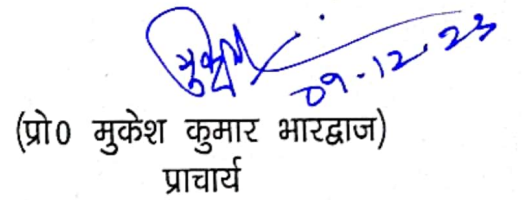 मुकेश
09-12-23
(प्रो0 मुकेश कुमार भारद्वाज)
प्राचार्य